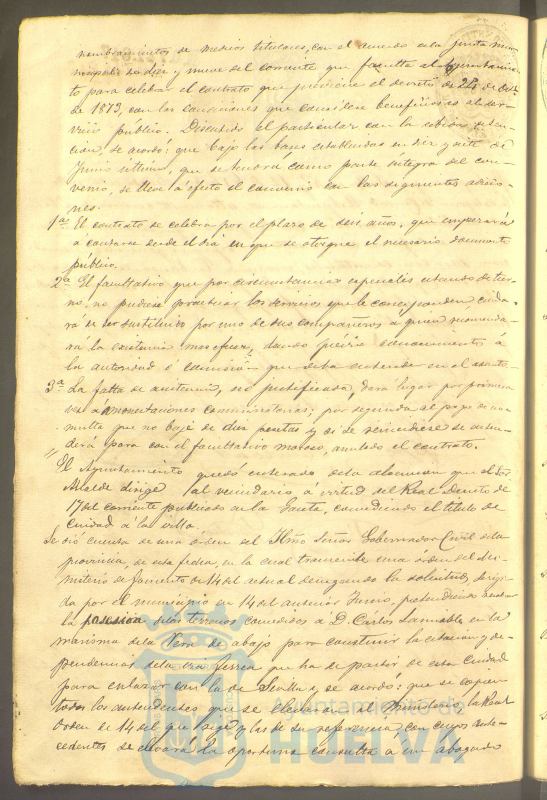 nombramientos de medicos titulares, con el acuerdo en la junta mu-
nicipal de diez y nueve del corriente que faculta al Ayuntamien-
to para celebrar el contrato que previene el decreto de 24 de Oct.
de 1873, con las condiciones que considere beneficiosas al ser-
vicio público. Discutido el particular con la debida aten-
cion, se acordó: que bajo las bases establecidas en diez y siete de
Junio último, que se tendrá como parte integra del con-
venio, se lleve á efecto el convenio con las siguientes adicio-
nes.
1ª El contrato se celebra por el plazo de seis años, que empezará
á contarse desde el dia en que se otorgue el necesario documento
público.
2ª El facultativo que por circunstancias especiales estando de tur-
no, no pudiese practicar los servicios que le correspondan cuida-
rá de ser sustituido por uno de sus compañeros á quien recomenda-
rá la asistencia mas eficaz, dando previo conocimiento á
la autoridad ó comision que deba entender en el asunto.
3ª La falta de asistencia, no justificada, dará lugar por primera
vez á amonestaciones conminatorias; por segunda al pago de una
multa que no baje de diez pesetas y si se reincidiese se enten-
derá para con el facultativo moroso, anulado el contrato.
" El Ayuntamiento quedó enterado de la alocucion que el Sor
Alcalde dirige al vecindario á virtud del Real Decreto de
17 del corriente publicado en la Gaceta, concediendo el titulo de
Ciudad á la villa.
Se dió cuenta de una órden del Iltmo Señor Gobernador Civil de la
provincia, de esta fecha, en la cual transcribe una órden del Mi-
nisterio de fomento de 14 del actual denegando la solicitud dirigi-
da por el municipio en 14 del anterior Junio, pretendiendo
la posesion de los terrenos concedidos á D. Cárlos Lamiable en la
marisma de la Vera de abajo para construir la estacion y de-
pendencias de la via ferrea que ha de partir de esta Ciudad
para enlazar con la de Sevilla y se acordó: que se copien
todos los antecedentes que se elevaron al Ministerio, la Real
Orden de 14 del que rige y las de su referencia, con cuyos ante-
cedentes se elevará la oportuna consulta á un abogado
Ayuntamiento de
HUELVA